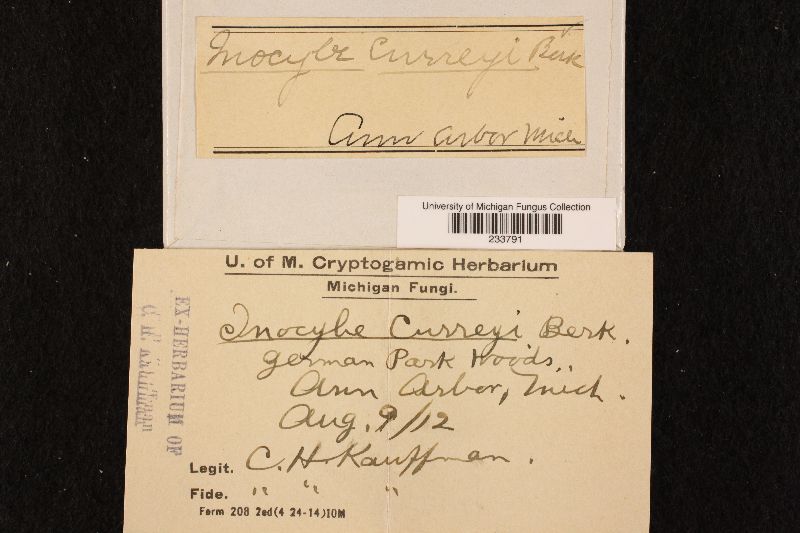 Inocybe Curreyi Berk
Ann Arbor Mich
University of Michigan Fungus Collection
233791
U. of M. Cryptogamic Herbarium
Michigan Fungi.
Inocybe Curreyi Berk.
German Park Woods.
Ann Arbor, Mich.
Aug. 9/12
Legit. C. H. Kauffman.
Fide. " " "
Form 208 2ed(4 24-14)10M
EX-HERBARIUM OF
C. H. Kauffman